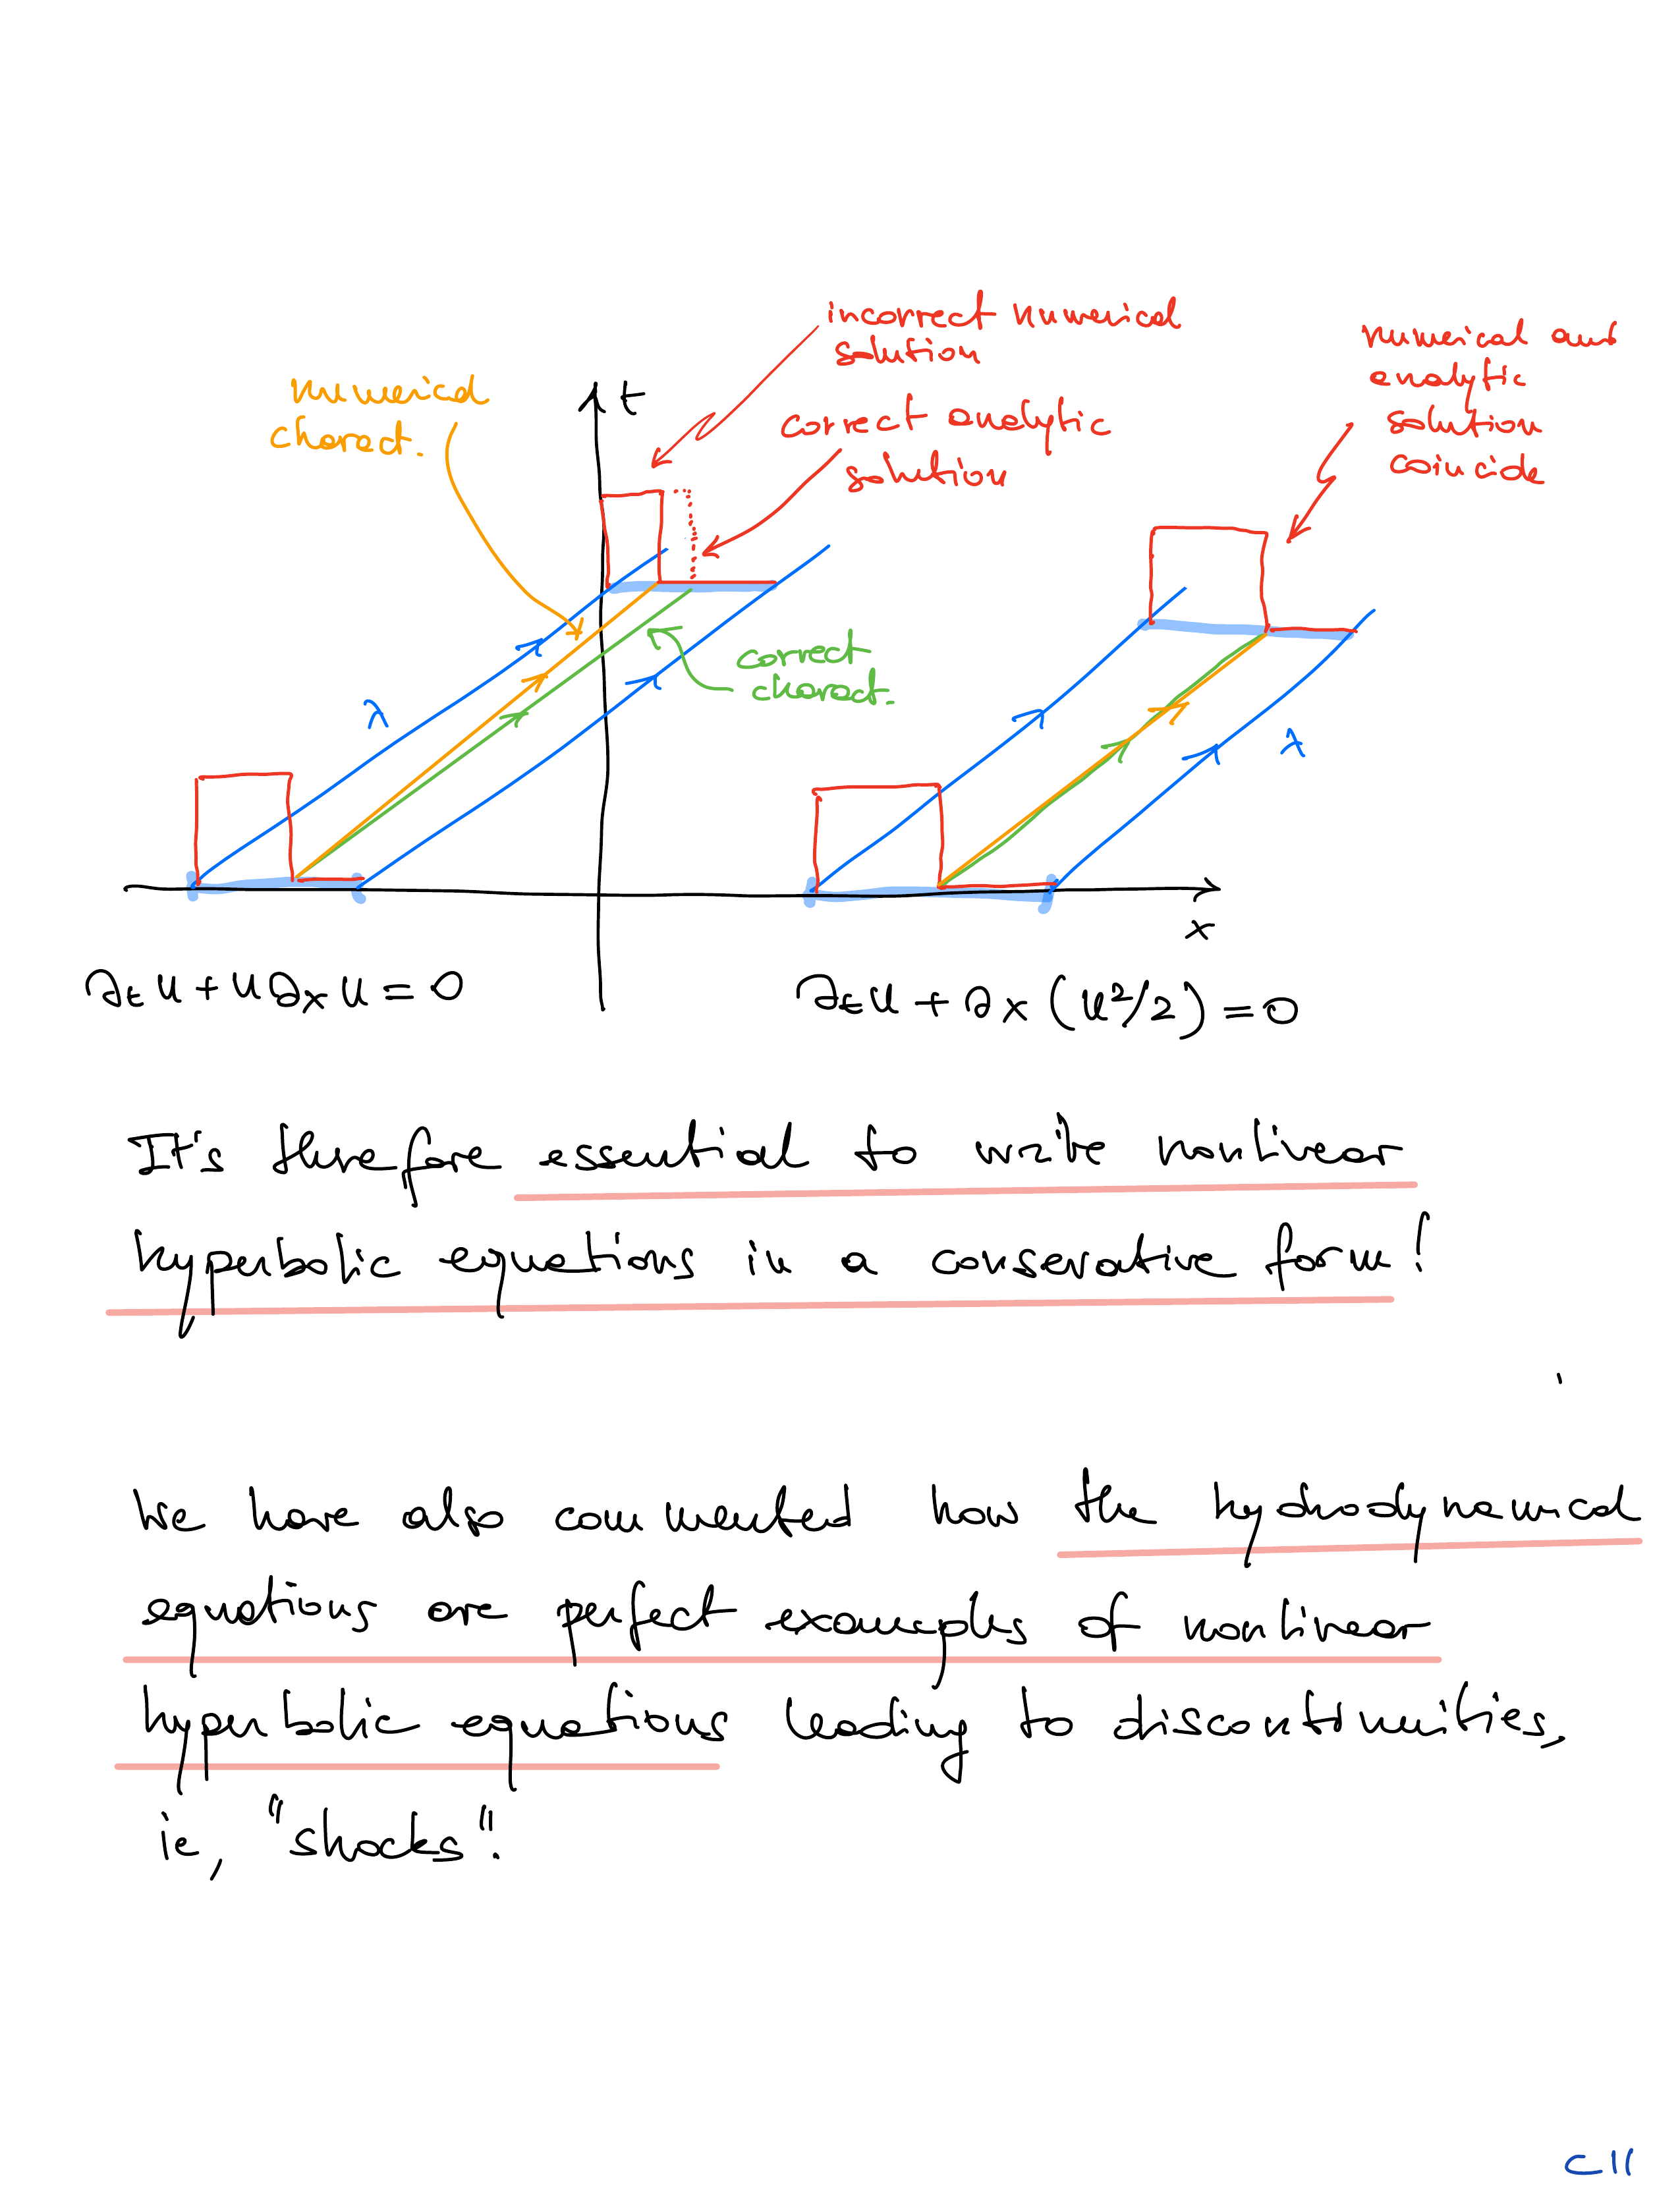 incorrect numerical
solution
numerical
charact.
t
correct analytic
solution
numerical and
analytic
solution
coincide
correct
charact.
λ
λ
x
∂ₜu + u∂ₓu = 0
∂ₜu + ∂x(u²/2) = 0
It's therefore essential to write nonlinear
hyperbolic equations in a conservative form!
We have also commented how the hydrodynamical
equations are perfect examples of nonlinear
hyperbolic equations leading to discontinuities,
ie, "shocks".
C11